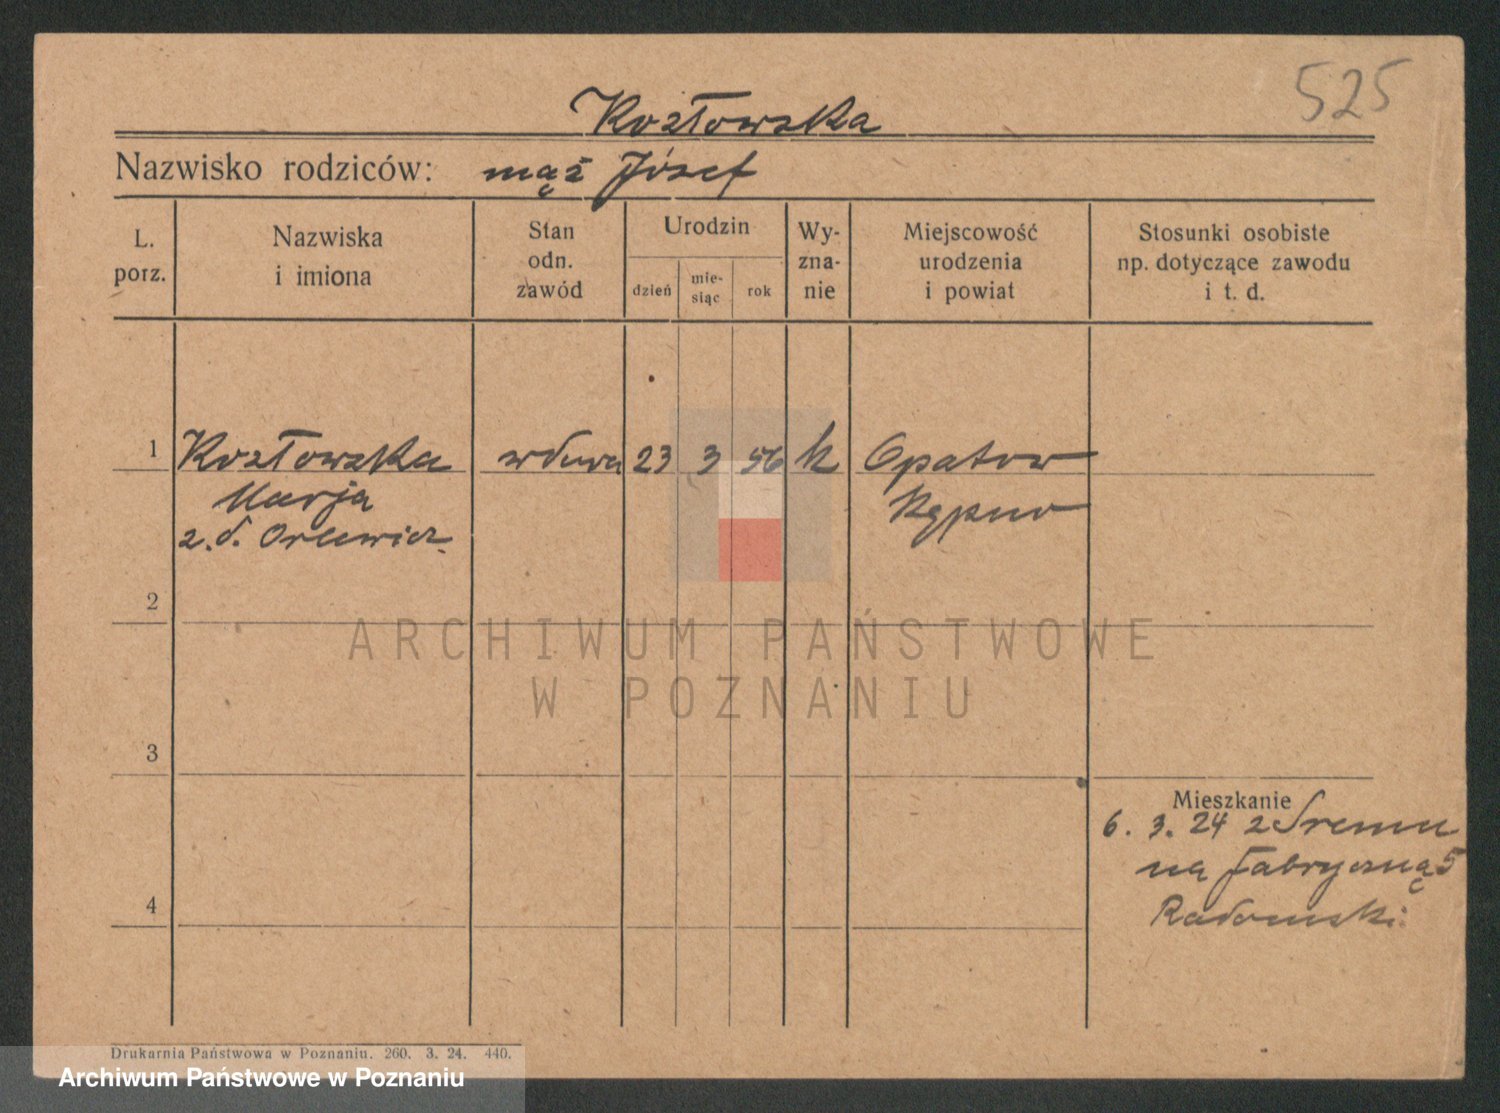 525
Kozłowska
Nazwisko rodziców: mąż Józef
L. porz.
Nazwiska i imiona
Stan odn. zawód
Urodzin
dzień
mie-siąc
rok
Wy-zna-nie
Miejscowość urodzenia i powiat
Stosunki osobiste np. dotyczące zawodu i t. d.
1 Kozłowska wdowa 23 3 56 k Opatow
Marja Kępno
z. d. Orlewicz
2
ARCHIWUM PAŃSTWOWE
W POZNANIU
3
Mieszkanie
6. 3. 24 z Śremu
na Fabryczną 5
4
Radomski
Drukarnia Państwowa w Poznaniu. 260. 3. 24. 440.
Archiwum Państwowe w Poznaniu